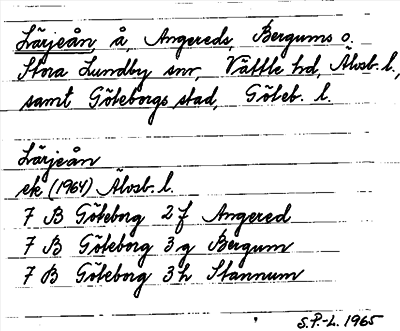 Lärjeån, å, Angereds, Bergums o.
Stora Lundby snr, Vättle hd, Älvsb. l.,
samt Göteborgs stad, Göteb. l.
Lärjeån
ek (1964) Älvsb. l.
7 B Göteborg 2 f Angered
7 B Göteborg 3 g Bergum
7 B Göteborg 3 h Stannum
S.P.-L. 1965